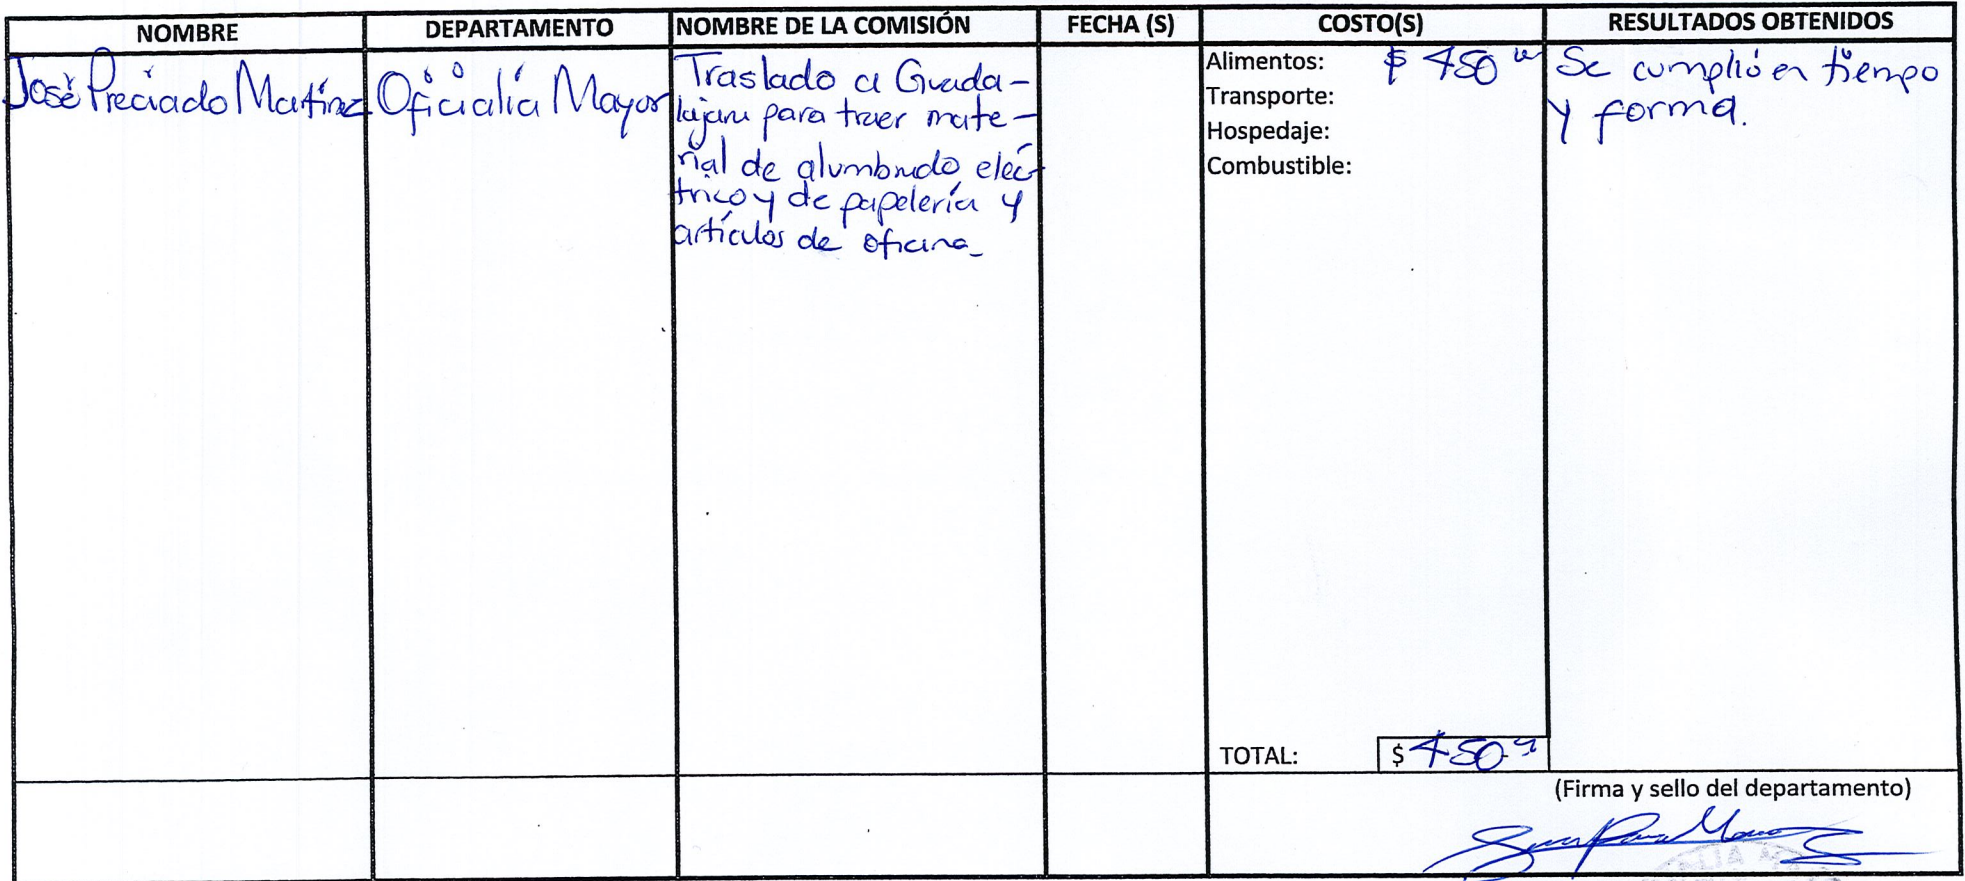 NOMBRE
DEPARTAMENTO
NOMBRE DE LA COMISIÓN
FECHA (S)
COSTO(S)
RESULTADOS OBTENIDOS
José Preciado Martínez
Oficialía Mayor
Traslado a Guada-
lajara para traer mate-
rial de alumbrado, eléc-
trico y de papelería y
artículos de oficina
Alimentos: $ 450
Transporte:
Hospedaje:
Combustible:
Se cumplió en tiempo
y forma.
TOTAL: $ 450
(Firma y sello del departamento)